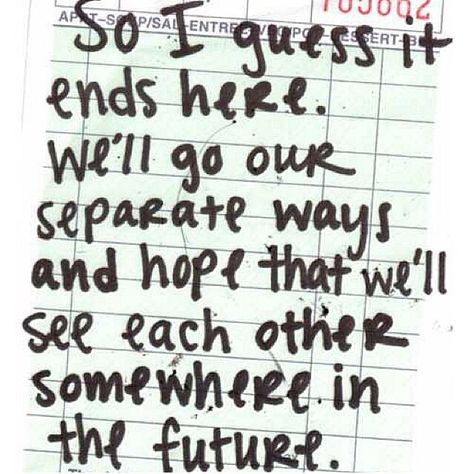 705662
APPT-SOUP/SAL-ENTREE-VEG/POT-DESSERT-BEV
So I guess it
ends here.
We'll go our
separate ways
and hope that we'll
see each other
somewhere in
the future.